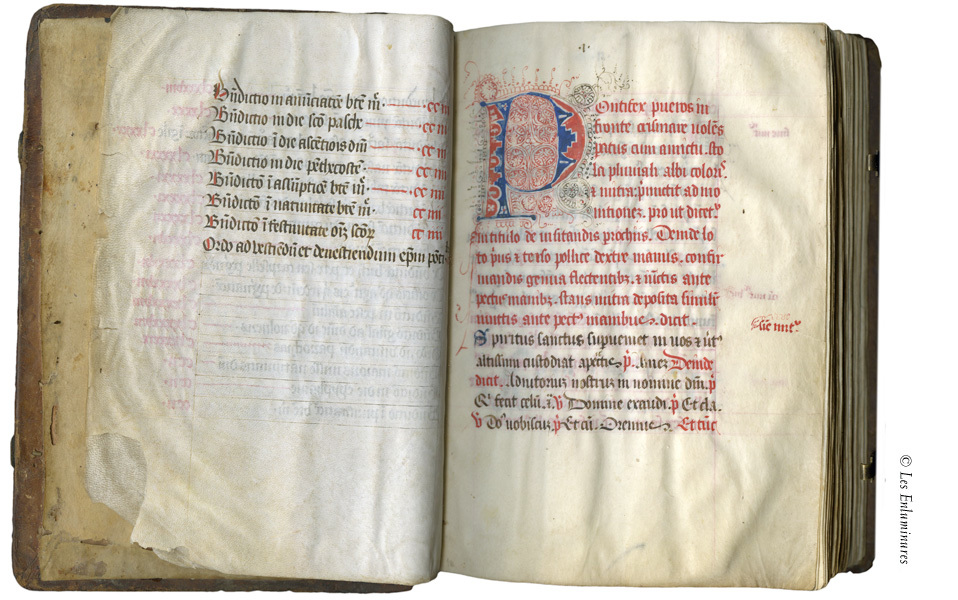 Bñdictio in añũciatõe bte m̃. cc iii
Bñdictio in die scõ pasche cc iii
Bñdictio ĩ die ascẽtiõis dñi cc iii
Bñdictio in die pẽthecostẽ. cc iii
Bñdictõ ĩ assũptiõe bte m̃. cc iii
Bñdictõ ĩ natiuitate bte m̃. cc iiii
Bñdictõ ĩ festiuitate oĩz scõꝝ cc iiii
Ordo ad vestiẽdũ et deuestiendum ep̃m
·I·
Pontifex pueros in
fronte crismare volẽs
amictu. sto
la pluuiali albi colorꝭ.
⁊ mitra. p̃mictit ad mo
nitionez. pro ut dicetʳ
in titulo de visitandis prochijs. Deinde lo
to p̃us ⁊ terso pollice dextre manus. confir
mandis genua flectentibz. ⁊ iũctis ante
pectus manibz. stans mitra deposita similr̃
iunctis ante pectꝰ manibus. dicit.
Spiritus sanctus supueniet in uos ⁊ ũtꝰ
altissimi custodiat a pctĩs. ꝶ. Amez Deinde
dicit. Adiutoriuz nostruz in nomine dñi. ꝶ
Qͥ fecit celũ. ⁊. ℣ Domine exaudi. ꝶ Et cla.
℣ Dñs uobiscuz. ꝶ Et cũ. Oremus. Et tũc
© Les Enluminures